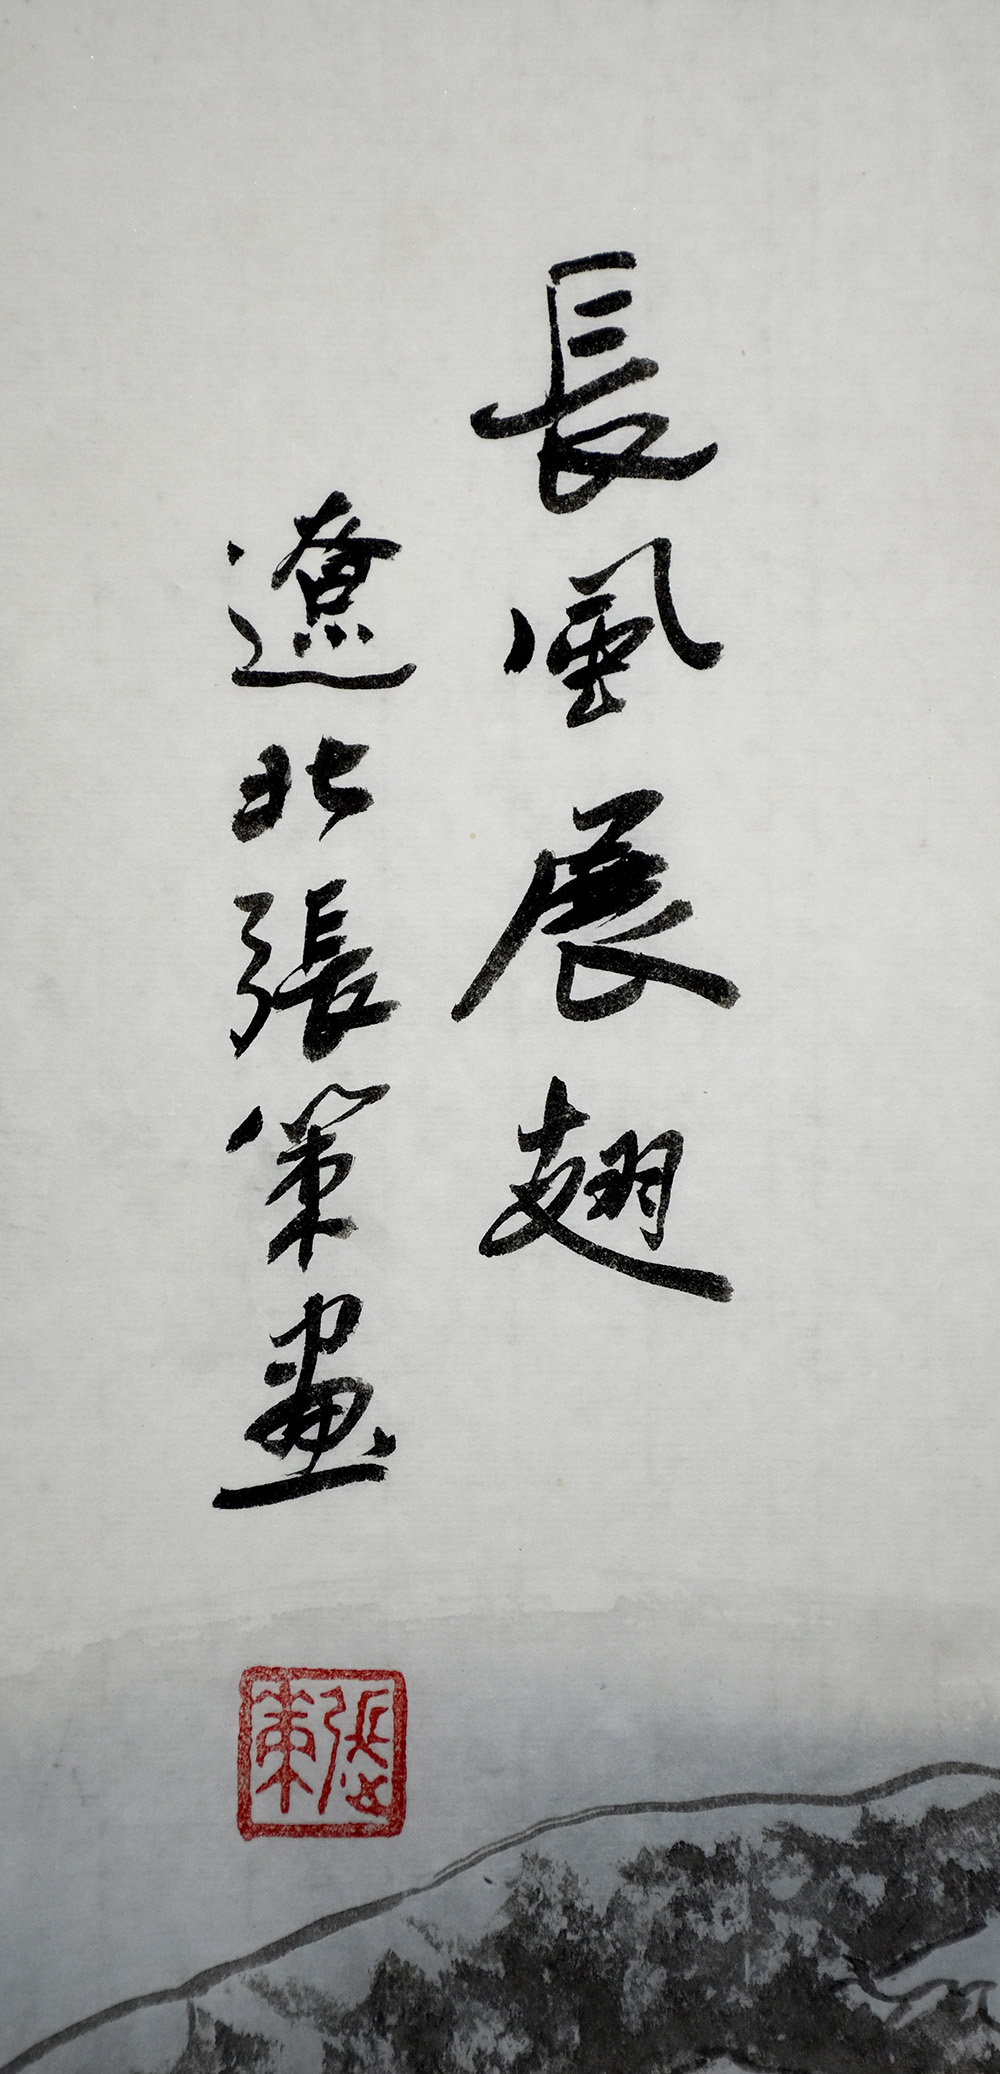 長風展翅
遼北張策畫
張策